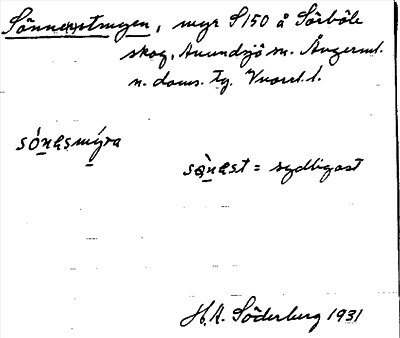 Sönnerstmyren, myr S 150 å Sörböle
skog, Anundsjö sn. Ångerml.
n. doms. tg. Vnorrl. l.
sónasmýra
sǫ̀nast = sydligast
H. A. Söderberg 1931